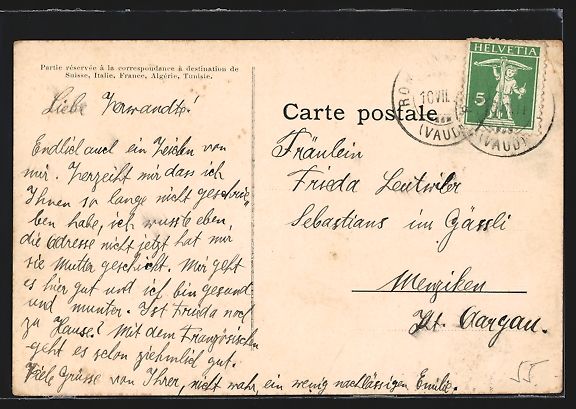 Partie réservée à la correspondance à destination de
Suisse, Italie, France, Algérie, Tunisie.
Liebe Verwandte!
Endlich auch ein Zeichen von
mir. Verzeiht mir dass ich
Ihnen so lange nicht geschrie-
ben habe, ich wusste eben,
die Adresse nicht jetzt hat mir
sie Mutter geschickt. Mir geht
es hier gut und ich bin gesund
und munter. Ist Frieda noch
zu Hause? Mit dem Französischen
geht es schon ziehmlich gut.
Viele Grüsse von Ihrer, nicht wahr, ein wenig nachlässigen Emilie.
Carte postale
HELVETIA
5
10 VII
(VAUD)
(VAUD)
Fräulein
Frieda Leutwiler
Sebastians im Gässli
Menziken
Kt. Aargau.
55